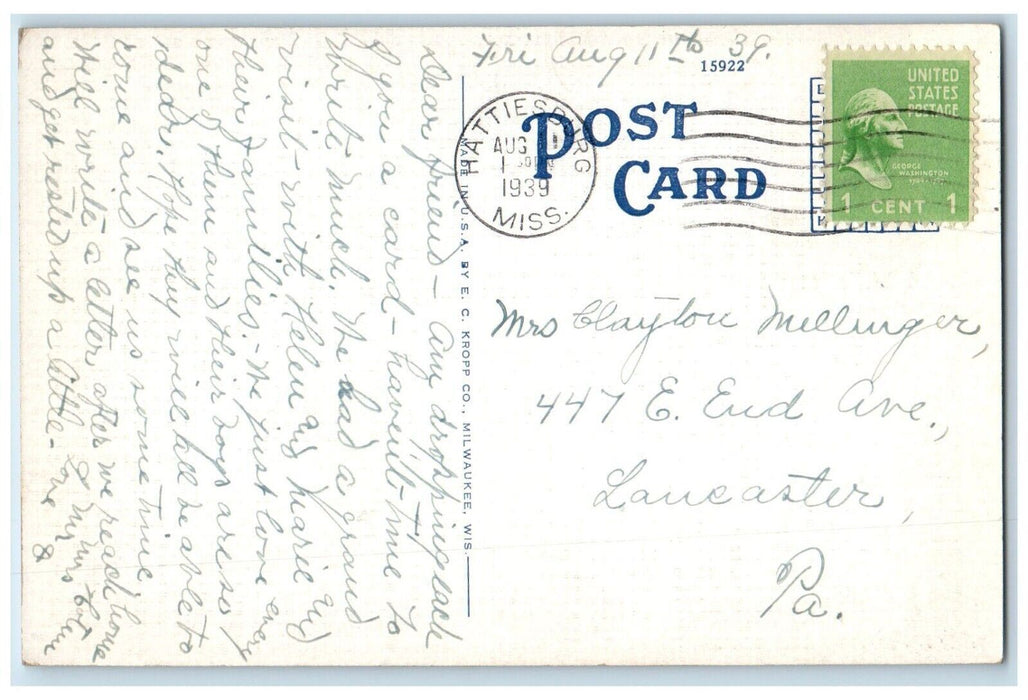 Fri Aug 11th 39.
15922
POST
CARD
HATTIESBURG
AUG 11
1 30PM
1939
MISS.
UNITED
STATES
POSTAGE
GEORGE
WASHINGTON
1 CENT 1
MADE IN U.S.A. BY E. C. KROPP CO., MILWAUKEE, WIS.
Dear friend - Am dropping each
of you a card - haven't time to
write much. We had a grand
visit - with Helen and Marie and
their families. - We just love every
one of them and their boys are so
dear. Hope they will all be able to
come and see us some time.
Will write a letter after we reach home
and get rested up a little - Love
& Mr. Mrs
Mrs Clayton Mellinger,
447 E. End Ave.,
Lancaster,
Pa.